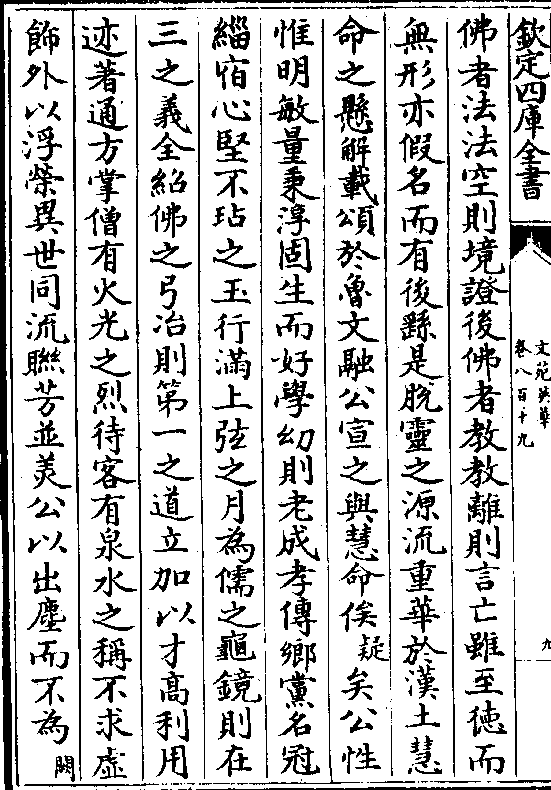 欽定四庫全書
文苑英華
卷八百十九
九
佛者法法空則境證後佛者教教離則言亡雖至徳而
無形亦假名而有後繇是脱靈之源流重華於漢土慧
命之懸解載頌於魯文融公宣之與慧命俟疑矣公性
惟明敏量秉淳固生而好學幼則老成孝傳鄉黨名冠
緇宿心堅不玷之玉行滿上弦之月為儒之龜鏡則在
三之義全紹佛之弓冶則第一之道立加以才高利用
迹著通方掌僧有火光之烈待客有泉水之稱不求虛
飾外以浮榮異世同流聯芳並羙公以出塵而不為闕